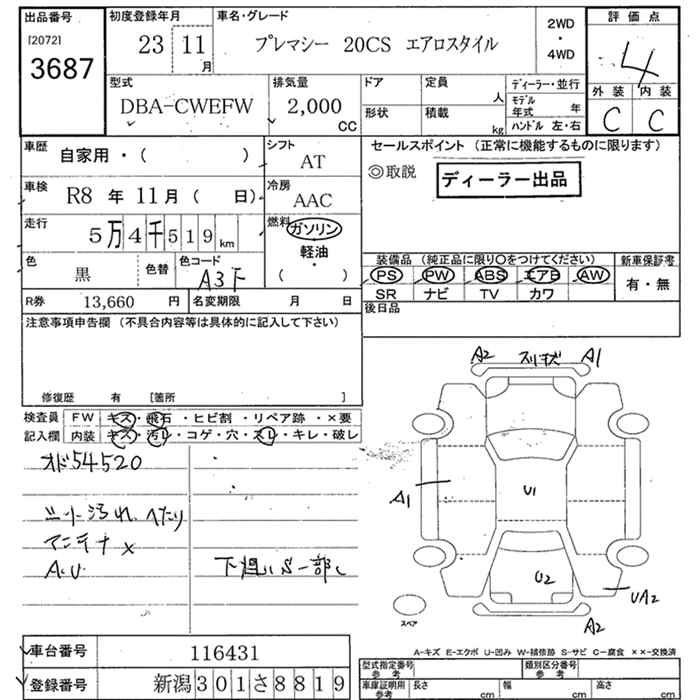 出品番号 初度登録年月 車名・グレード 2WD・4WD 評価点
[2072] 3687 23 11月 プレマシー 20CS エアロスタイル 4
型式 排気量 ドア 定員 人 ディーラー・並行 外装 内装
DBA-CWEFW 2,000 CC 形状 積載 kg モデル年式 年 ハンドル 左・右 C C
車歴 自家用・( ) シフト AT セールスポイント (正常に機能するものに限ります)
◎取説 ディーラー出品
車検 R8 年 11月 ( 日) 冷房 AAC
走行 5万4千519km 燃料 ガソリン・軽油・( )
色 黒 色替 色コード A3F
装備品 (純正品に限り〇をつけてください) 新車保証書
PS PW ABS エアB AW 有・無
SR ナビ TV カワ
R券 13,660 円 名変期限 月 日 後日品
注意事項申告欄 (不具合内容等は具体的に記入して下さい)
修復歴 有 [箇所 ]
検査員 FW キズ・飛石・ヒビ割・リペア跡・×要
記入欄 内装 キズ・汚レ・コゲ・穴・スレ・キレ・破レ
A2 スリキズ A1
オド54520
A1 U1
シート汚れ、へたり
アンテナ×
A.U
U2 UA2
スペア A2
A-キズ E-エクボ U-凹み W-補修跡 S-サビ C-腐食 ××-交換済
車台番号 116431
登録番号 新潟301さ8819
型式指定番号 参考 類別区分番号 参考
車庫証明用 参考 長さ cm 幅 cm 高さ cm